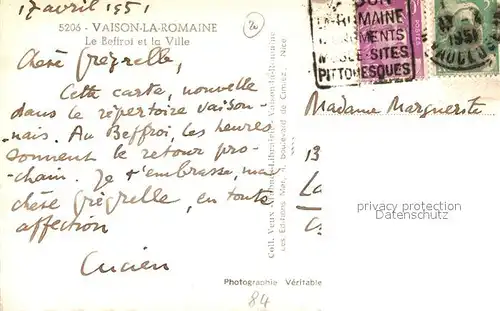 17 avril 1951
5206 - VAISON-LA-ROMAINE
Le Beffroi et la Ville
Chère Grégrelle,
Cette carte, nouvelle
dans le répertoire vaison-
nais. Au Beffroi, les heures
sonnent le retour pro-
chain. Je t'embrasse, ma
chère grégrelle, en toute
affection
Lucien
Photographie Véritable
84
Coll. Veux Librairie Vaison-la-Romaine
Les Editions Mar, 4, boulevard de Cimiez, Nice
LA-ROMAINE
MONUMENTS
SITES
PITTORESQUES
1951
VAUCLUSE
Madame Marguerite
13
privacy protection
Datenschutz